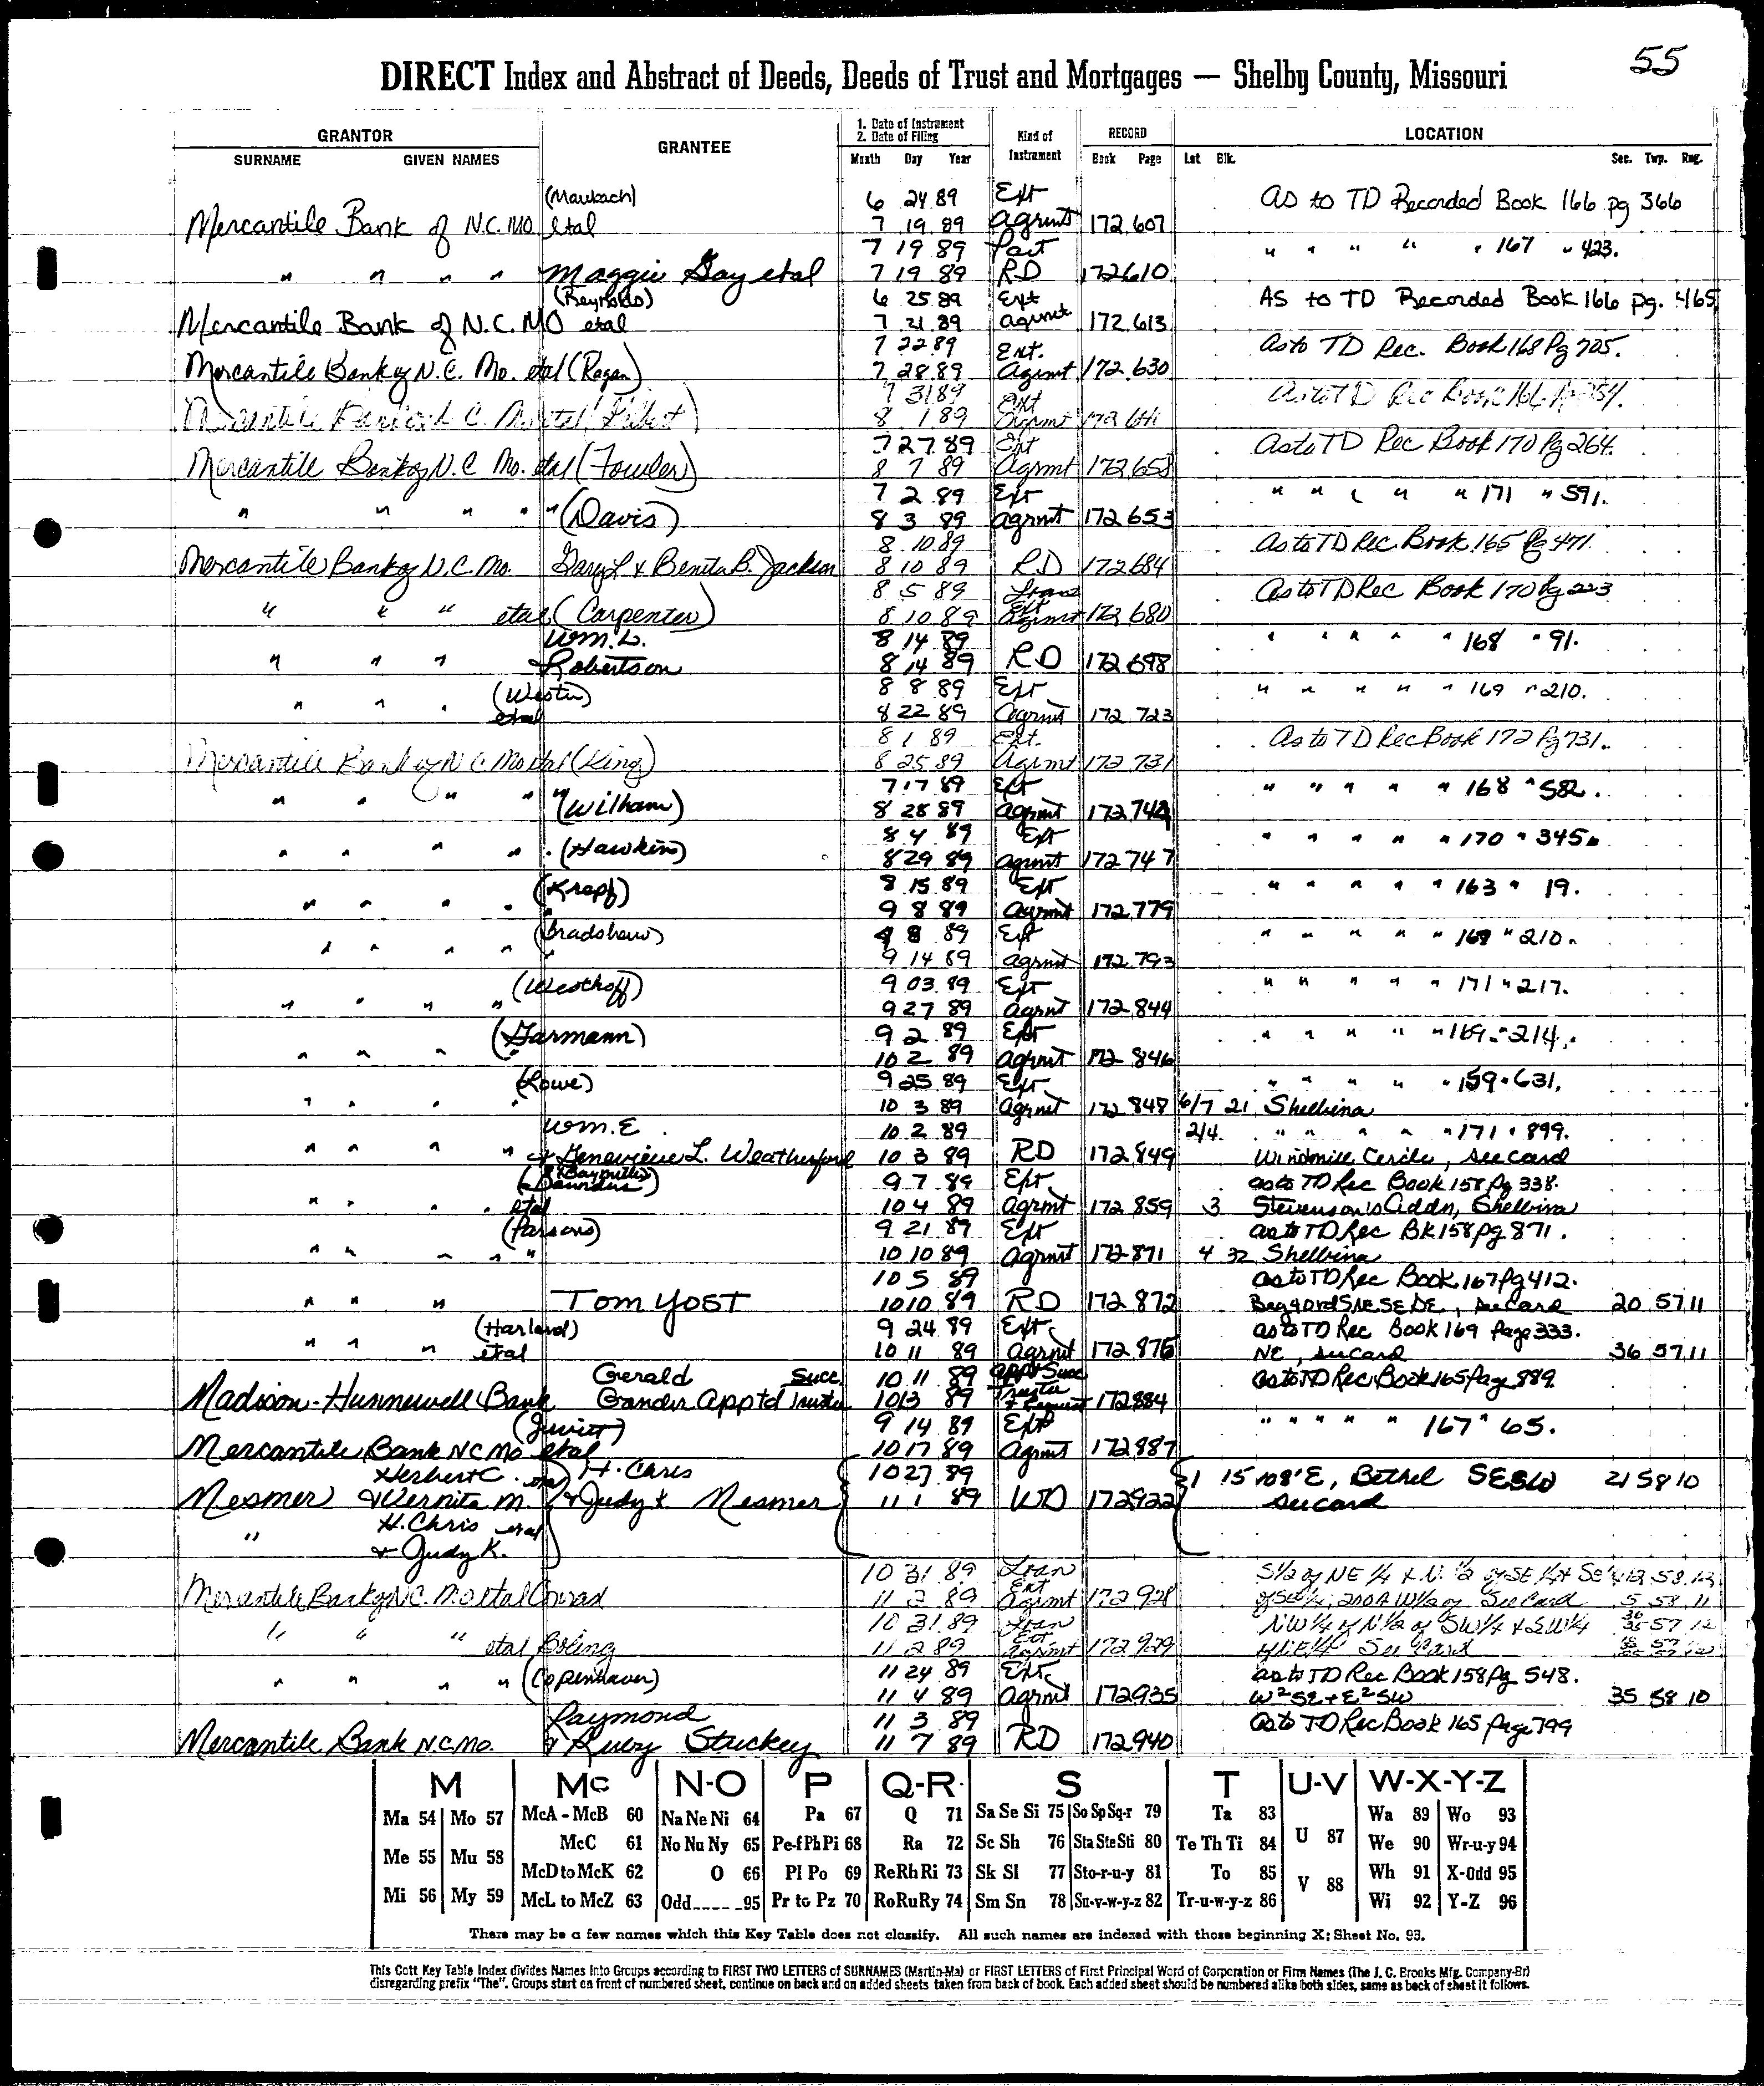 55
DIRECT Index and Abstract of Deeds, Deeds of Trust and Mortgages — Shelby County, Missouri
GRANTOR GRANTEE 1. Date of Instrument 2. Date of Filing Kind of Instrument RECORD LOCATION
SURNAME GIVEN NAMES Month Day Year Book Page Lot Blk. Sec. Twp. Rng.
(Maubach) 6 24 89 Ext As to TD Recorded Book 166 pg 366
Mercantile Bank of N.C. MO etal 7 19 89 agrmt 172 607
7 19 89 Part " " " " " 167 " 423.
" " " " Maggie Gay etal 7 19 89 RD 172 610
(Reynolds) 6 25 89 Ext AS to TD Recorded Book 166 pg. 465
Mercantile Bank of N.C. MO etal 7 21 89 agrmt. 172 613
7 22 89 Ext. As to TD Rec. Book 168 Pg 705.
Mercantile Bank of N.C. Mo. etal (Ragan) 7 28 89 Agrmt 172 630
7 31 89 Ext As to TD Rec Book 166
Mercantile Bank of N.C. Mo etal 8 1 89 Agrmt 172 641
7 27 89 Ext As to TD Rec Book 170 Pg 264.
Mercantile Bank of N.C. Mo. etal (Fowler) 8 7 89 Agrmt 172 658
7 2 89 Ext " " " " " 171 " 591.
" " " " " (Davis) 8 3 89 agrmt 172 653
8 10 89 As to TD Rec. Book 165 Pg 471.
Mercantile Bank of N.C. Mo. Gary L & Benita B. Jackson 8 10 89 RD 172 684
8 5 89 Loan As to TD Rec Book 170 Pg 223
" " " etal (Carpenter) 8 10 89 Ext Agrmt 172 680
Wm. L. 8 14 89 " " " " " 168 " 91.
" " " Robertson 8 14 89 RD 172 698
(Wester) 8 8 89 Ext " " " " " 169 " 210.
" " " etal 8 22 89 Agrmt 172 723
8 1 89 Ext. As to TD Rec Book 172 Pg 731.
Mercantile Bank of N.C. Mo etal (King) 8 25 89 Agrmt 172 731
7 17 89 Ext " " " " " 168 " 582.
" " " " " (Wilham) 8 28 89 agrmt 172 742
8 4 89 Ext " " " " " 170 " 345.
" " " " . (Hawkins) 8 29 89 agrmt 172 747
(Krapf) 8 15 89 Ext " " " " " 163 " 19.
" " " " 9 8 89 agrmt 172 779
(Bradshaw) 9 8 89 Ext " " " " " 169 " 210.
" " " " 9 14 89 agrmt 172 793
(Westhoff) 9 03 89 Ext " " " " " 171 " 217.
" " " " 9 27 89 agrmt 172 844
(Garmann) 9 2 89 Ext " " " " " 169 " 214.
" " " " 10 2 89 agrmt 172 846
(Lowe) 9 25 89 Ext " " " " " 159 " 631.
" " " " 10 3 89 Agrmt 172 848 6/7 21 Shelbina
Wm. E. 10 2 89 2/4. " " " " " 171 " 899.
" " " " & Genevieve L. Weatherford 10 3 89 RD 172 849 Windmill Circle, see card
(Saunders) 9 7 89 Ext. as to TD Rec Book 158 Pg 338.
" " " . etal 10 4 89 agrmt 172 859 3 Stevenson's Addn, Shelbina
(Parsons) 9 21 89 Ext as to TD Rec BK 158 pg 871.
" " " " " 10 10 89 Agrmt 172 871 4 32 Shelbina
10 5 89 as to TD Rec Book 167 Pg 412.
" " " Tom YOST 10 10 89 RD 172 872 see card 20 57 11
(Harland) 9 24 89 Ext. as to TD Rec Book 169 Page 333.
" " " etal 10 11 89 Agrmt 172 875 NE, see card 36 57 11
Gerald Succ. 10 11 89 Appt Succ as to TD Rec. Book 165 Page 889.
Madison-Hunnewell Bank Gander App'td Trustee 10 13 89 Trustee & Request 172 884
(Jewett) 9 14 89 Ext " " " " " 167 " 65.
Mercantile Bank NC Mo etal 10 17 89 Agrmt 172 887
Herbert C. etal H. Chris 10 27 89 1 15 108' E, Bethel SESW 21 58 10
Mesmer & Vernita M. & Judy K. Mesmer 11 1 89 WD 172 922 see card
" H. Chris etal
& Judy K.
10 31 89 Loan S½ of NE ¼ & N ½ of SE ¼
Mercantile Bank of N.C. Mo etal Conrad 11 2 89 Ext Agrmt 172 928 See Card 5 58 11
10 31 89 Loan NW ¼ of N ½ of SW ¼ & SW ¼ 36 57 12
" " " etal Boling 11 2 89 Ext agrmt 172 929 See Card
" " " " (Copenhaver) 11 24 89 Ext. as to TD Rec Book 158 Pg 548.
11 4 89 Agrmt 172 935 W²SE + E²SW 35 58 10
Raymond 11 3 89 as to TD Rec Book 165 Page 799
Mercantile Bank N.C. Mo. & Ruby Stuckey 11 7 89 RD 172 940
M Mc N-O P Q-R S T U-V W-X-Y-Z
Ma 54 Mo 57 McA - McB 60 Na Ne Ni 64 Pa 67 Q 71 Sa Se Si 75 So Sp Sq-r 79 Ta 83 U 87 Wa 89 Wo 93
Me 55 Mu 58 McC 61 No Nu Ny 65 Pe-f Ph Pi 68 Ra 72 Sc Sh 76 Sta Ste Sti 80 Te Th Ti 84 V 88 We 90 Wr-u-y 94
McD to McK 62 O 66 Pl Po 69 Re Rh Ri 73 Sk Sl 77 Sto-r-u-y 81 To 85 Wh 91 X-Odd 95
Mi 56 My 59 McL to McZ 63 Odd 95 Pr to Pz 70 Ro Ru Ry 74 Sm Sn 78 Su-v-w-y-z 82 Tr-u-w-y-z 86 Wi 92 Y-Z 96
There may be a few names which this Key Table does not classify. All such names are indexed with those beginning X; Sheet No. 95.
This Cott Key Table Index divides Names into Groups according to FIRST TWO LETTERS of SURNAMES (Martin-Ma) or FIRST LETTERS of First Principal Word of Corporation or Firm Names (The J. C. Brooks Mfg. Company-Br)
disregarding prefix "The". Groups start on front of numbered sheet, continue on back and on added sheets taken from back of book. Each added sheet should be numbered alike both sides, same as back of sheet it follows.